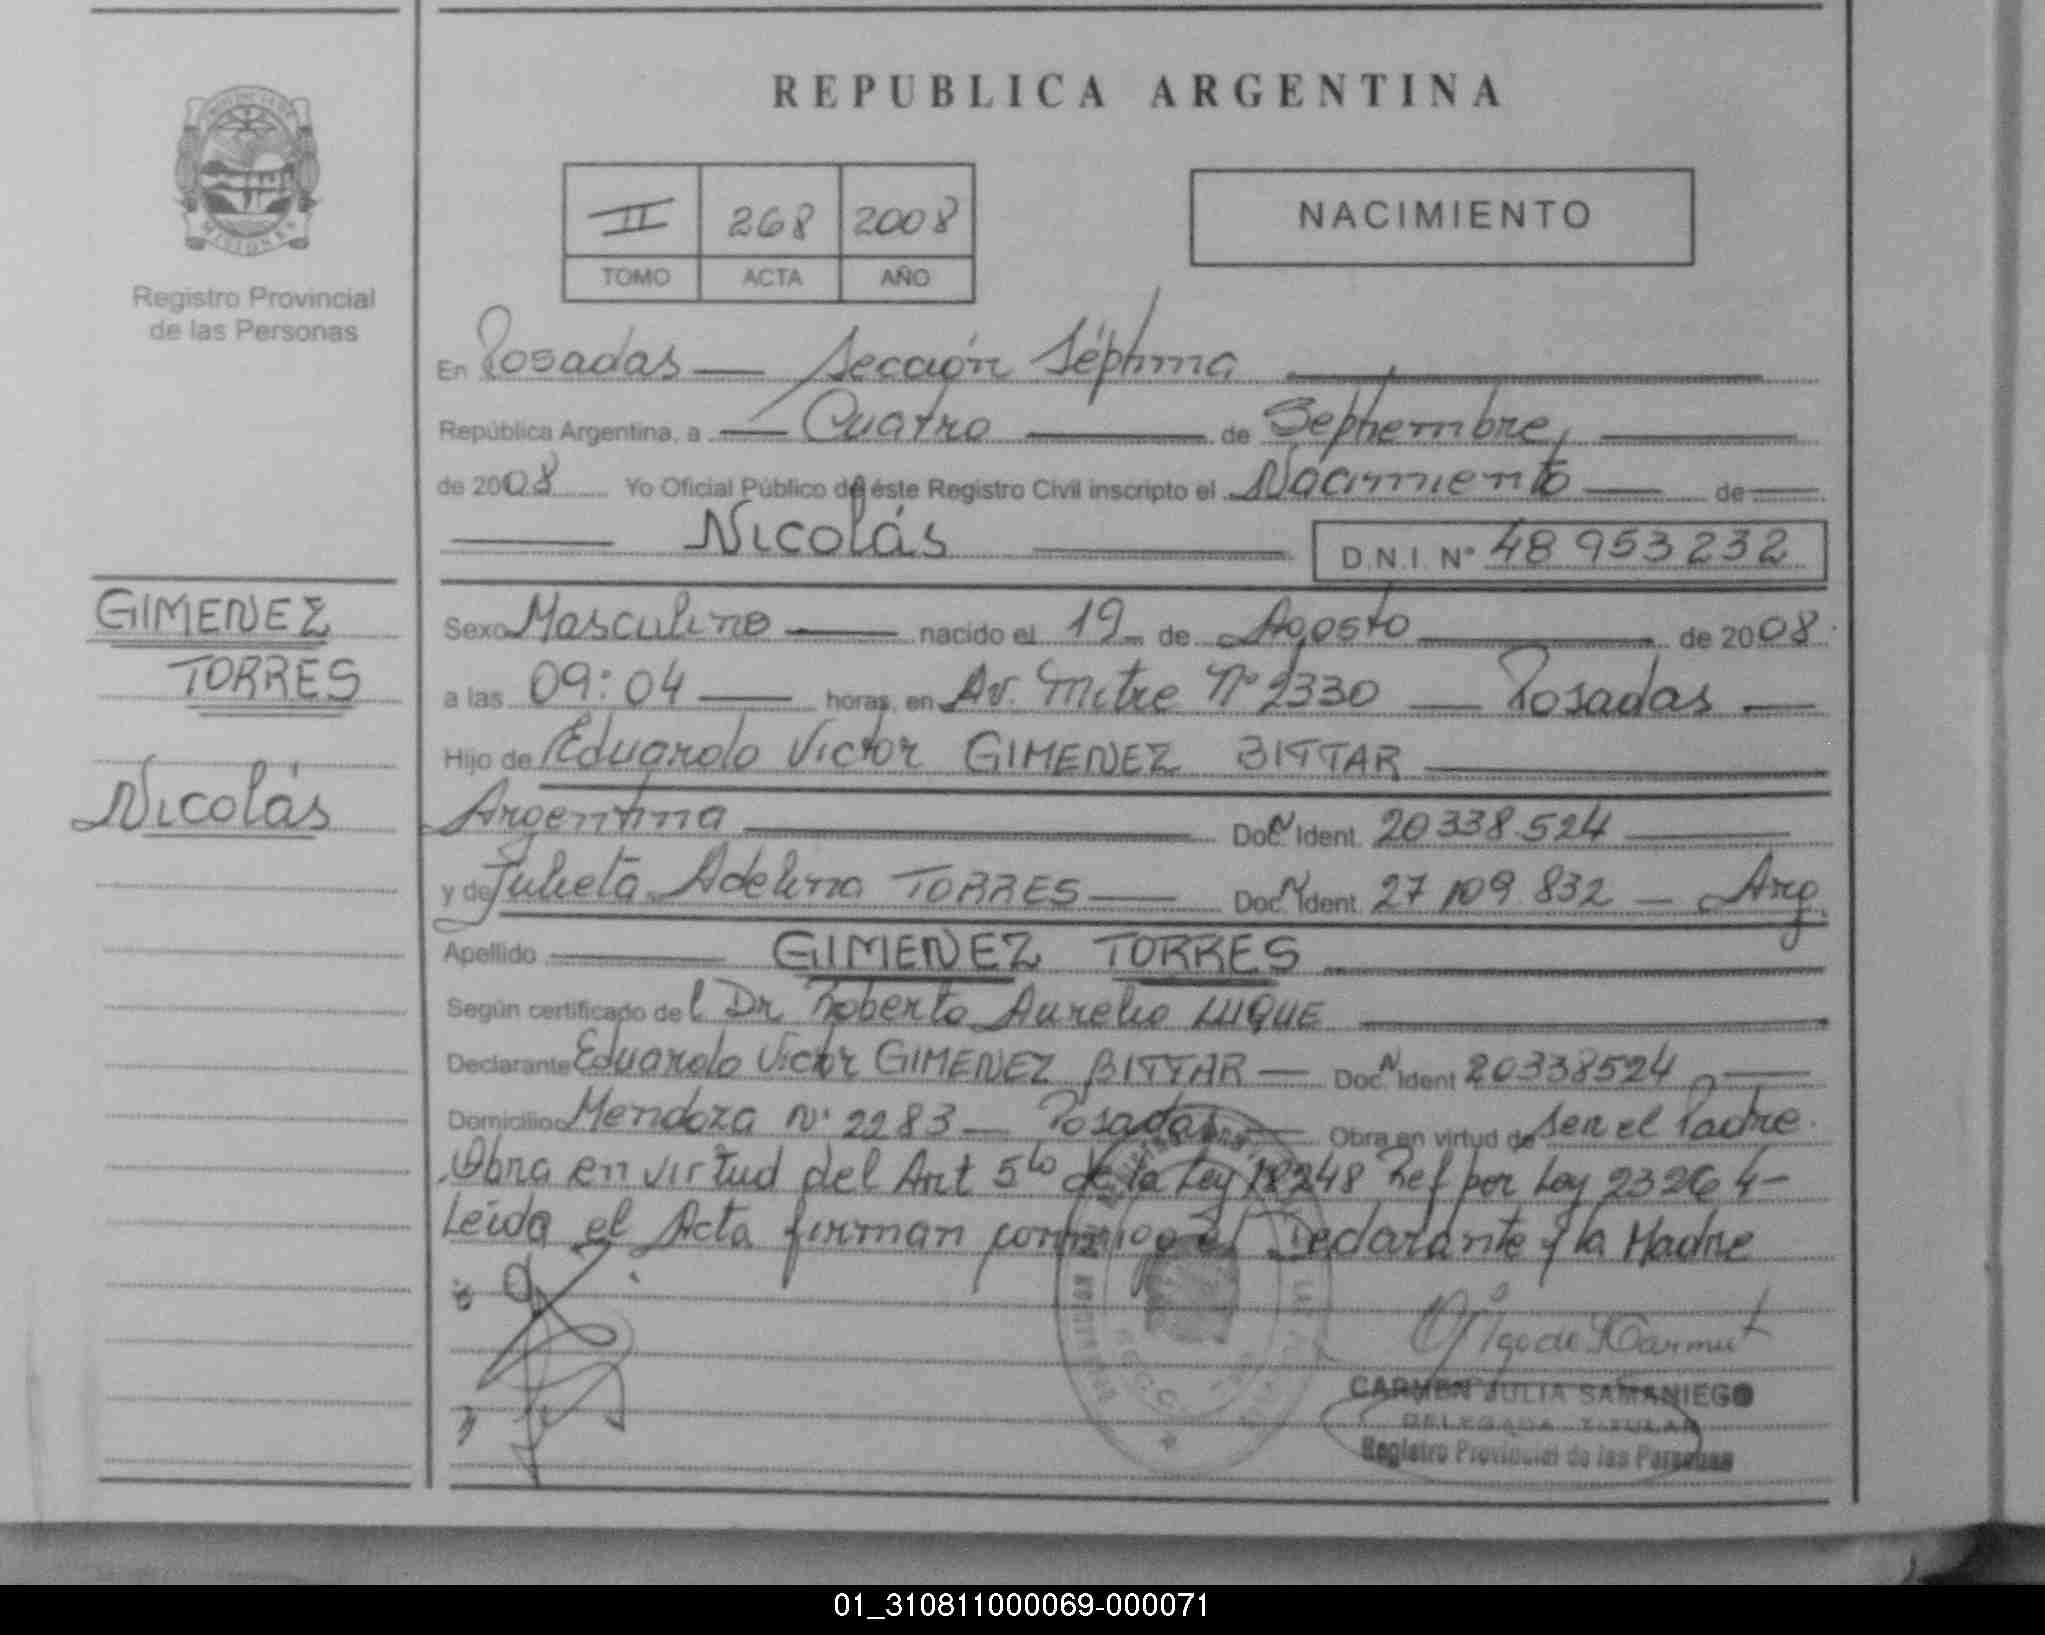 REPUBLICA ARGENTINA
PROVINCIA DE
MISIONES
Registro Provincial
de las Personas
II 268 2008
TOMO ACTA AÑO
NACIMIENTO
En Posadas — Sección Séptima
República Argentina, a Cuatro de Septiembre,
de 2008 Yo Oficial Público de éste Registro Civil inscripto el Nacimiento de
Nicolás D.N.I. Nº 48 953 232
GIMENEZ
TORRES
Nicolás
Sexo Masculino nacido el 19 de Agosto de 2008
a las 09:04 horas, en Av. Mitre Nº 2330 — Posadas —
Hijo de Eduardo Victor GIMENEZ BITTAR
Argentina Doc. Ident. 20 338.524
y de Julieta Adelina TORRES — Doc. Ident. 27 109 832 — Arg.
Apellido GIMENEZ TORRES
Según certificado del Dr Roberto Aurelio LUQUE
Declarante Eduardo Victor GIMENEZ BITTAR — Doc. Ident 20338524
Domicilio Mendoza Nº 2283 — Posadas — Obra en virtud de Ser el Padre.
Obra en virtud del Art 5to de la Ley 18248 Ref por Ley 23264-
Leida el Acta firman conmigo el Declarante y la Madre
CARMEN JULIA SAMANIEGO
DELEGADA TITULAR
Registro Provincial de las Personas
01_310811000069-000071